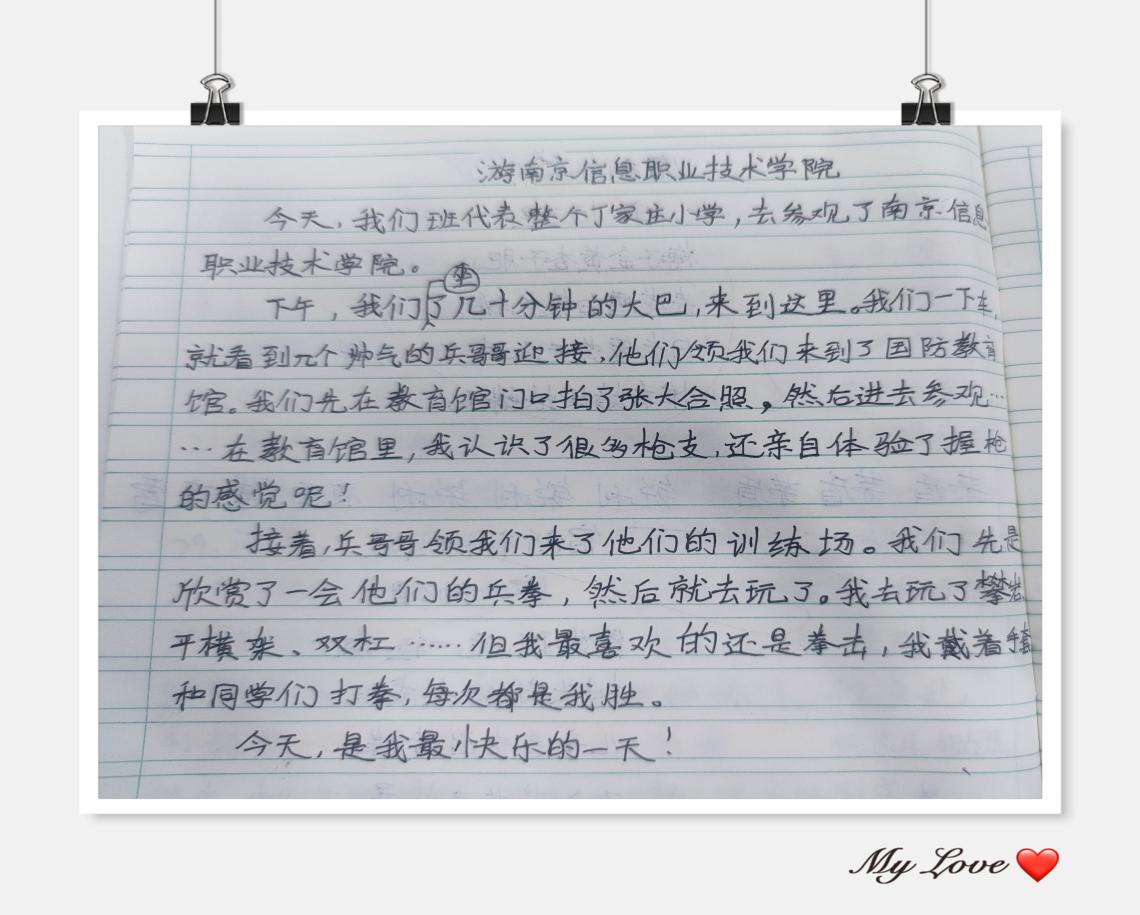 游南京信息职业技术学院
今天，我们班代表整个丁家庄小学，去参观了南京信息
职业技术学院。
坐
下午，我们了几十分钟的大巴，来到这里。我们一下车，
就看到几个帅气的兵哥哥迎接，他们领我们来到了国防教育
馆。我们先在教育馆门口拍了张大合照，然后进去参观…
…在教育馆里，我认识了很多枪支，还亲自体验了握枪
的感觉呢！
接着，兵哥哥领我们来了他们的训练场。我们先是
欣赏了一会他们的兵拳，然后就去玩了。我去玩了攀岩
平横架、双杠……但我最喜欢的还是拳击，我戴着手套
和同学们打拳，每次都是我胜。
今天，是我最快乐的一天！
My Love